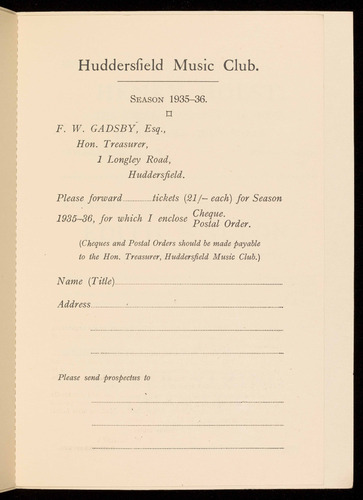 Huddersfield Music Club.
SEASON 1935–36.
F. W. GADSBY, Esq.,
Hon. Treasurer,
1 Longley Road,
Huddersfield.
Please forward............tickets (21/– each) for Season
1935–36, for which I enclose Cheque.
Postal Order.
(Cheques and Postal Orders should be made payable
to the Hon. Treasurer, Huddersfield Music Club.)
Name (Title)
Address
Please send prospectus to